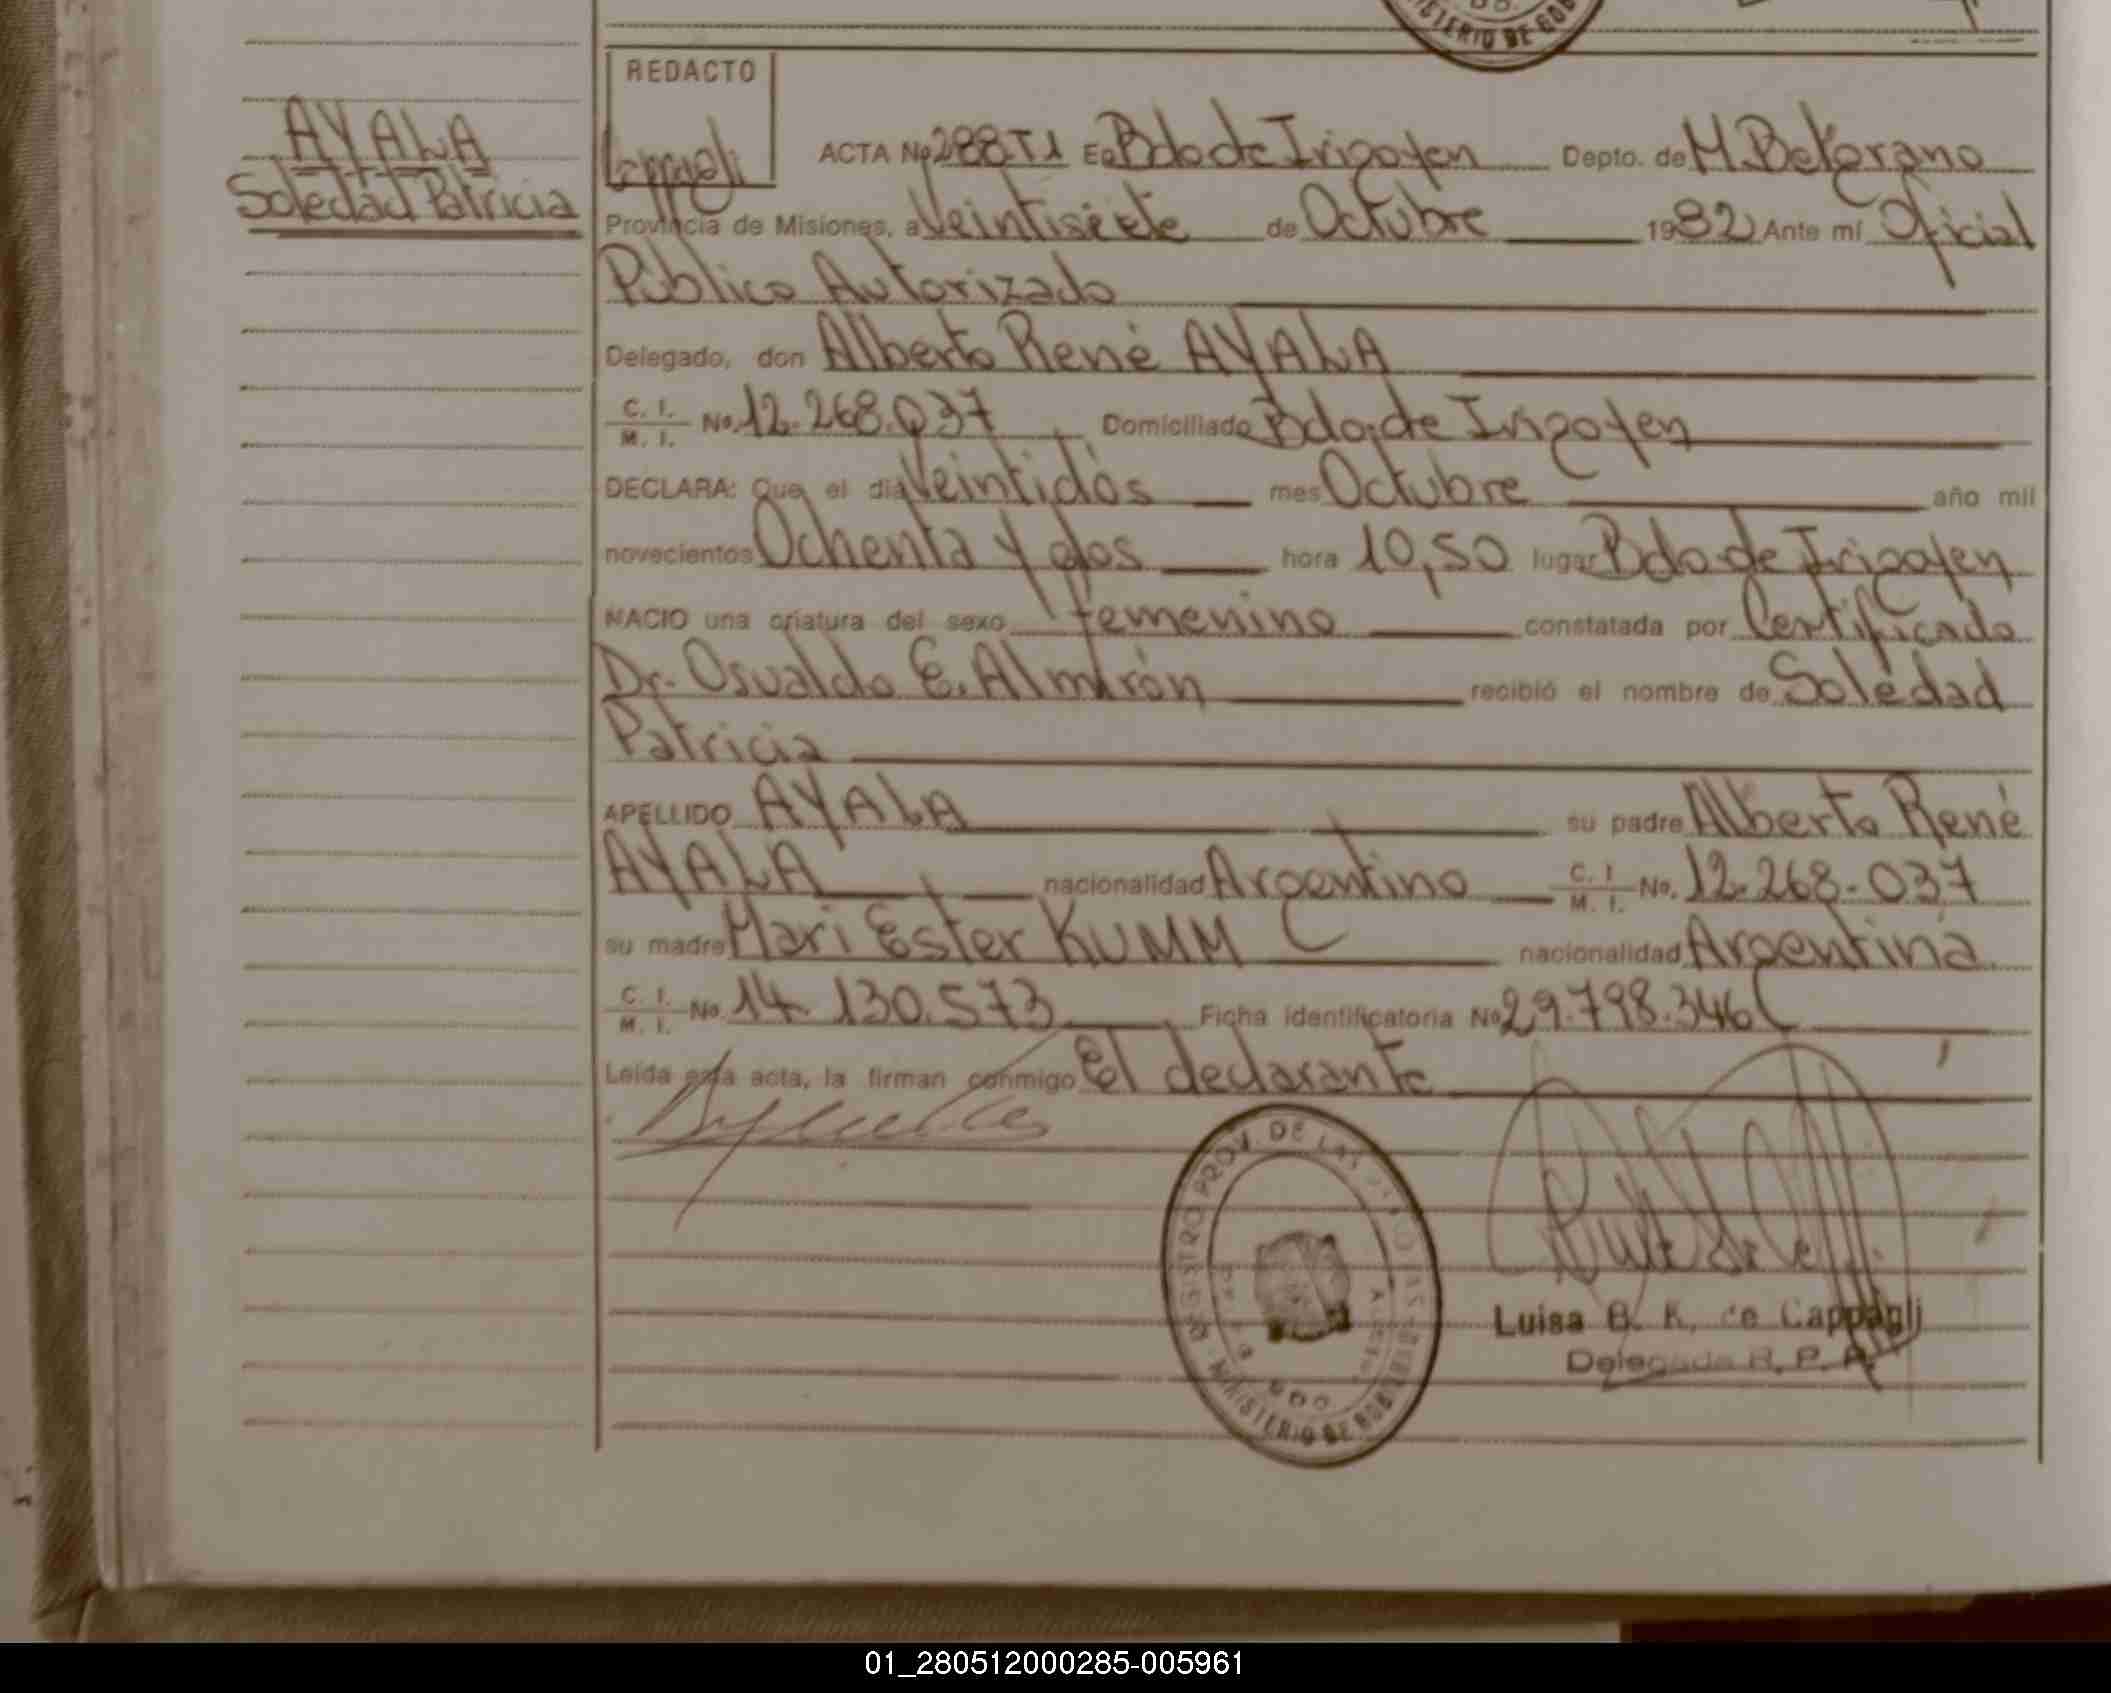 MINISTERIO DE GOB
REDACTO
Cappagli
AYALA
Soledad Patricia
ACTA No 288.T1 En Bdo de Irigoyen Depto. de M. Belgrano
Provincia de Misiones, a Veintisiete de Octubre 1982 Ante mí Oficial
Público Autorizado
Delegado, don Alberto René AYALA
C. I. / M. I. No. 12.268.037 Domiciliado Bdo. de Irigoyen
DECLARA: Que el día Veintidós mes Octubre año mil
novecientos Ochenta y dos hora 10,50 lugar Bdo de Irigoyen
NACIO una criatura del sexo femenino constatada por Certificado
Dr. Osvaldo E. Almirón recibió el nombre de Soledad
Patricia
APELLIDO AYALA su padre Alberto René
AYALA nacionalidad Argentino C. I. / M. I. No. 12.268.037
su madre Mari Ester KUMM nacionalidad Argentina
C. I. / M. I. No. 14.130.573 Ficha identificatoria No 29.798.346
Leída esta acta, la firman conmigo El declarante
REGISTRO PROV. DE LAS
MINISTERIO DE GOB
Luisa B. K. de Cappagli
Delegada R. P. P.
01_280512000285-005961